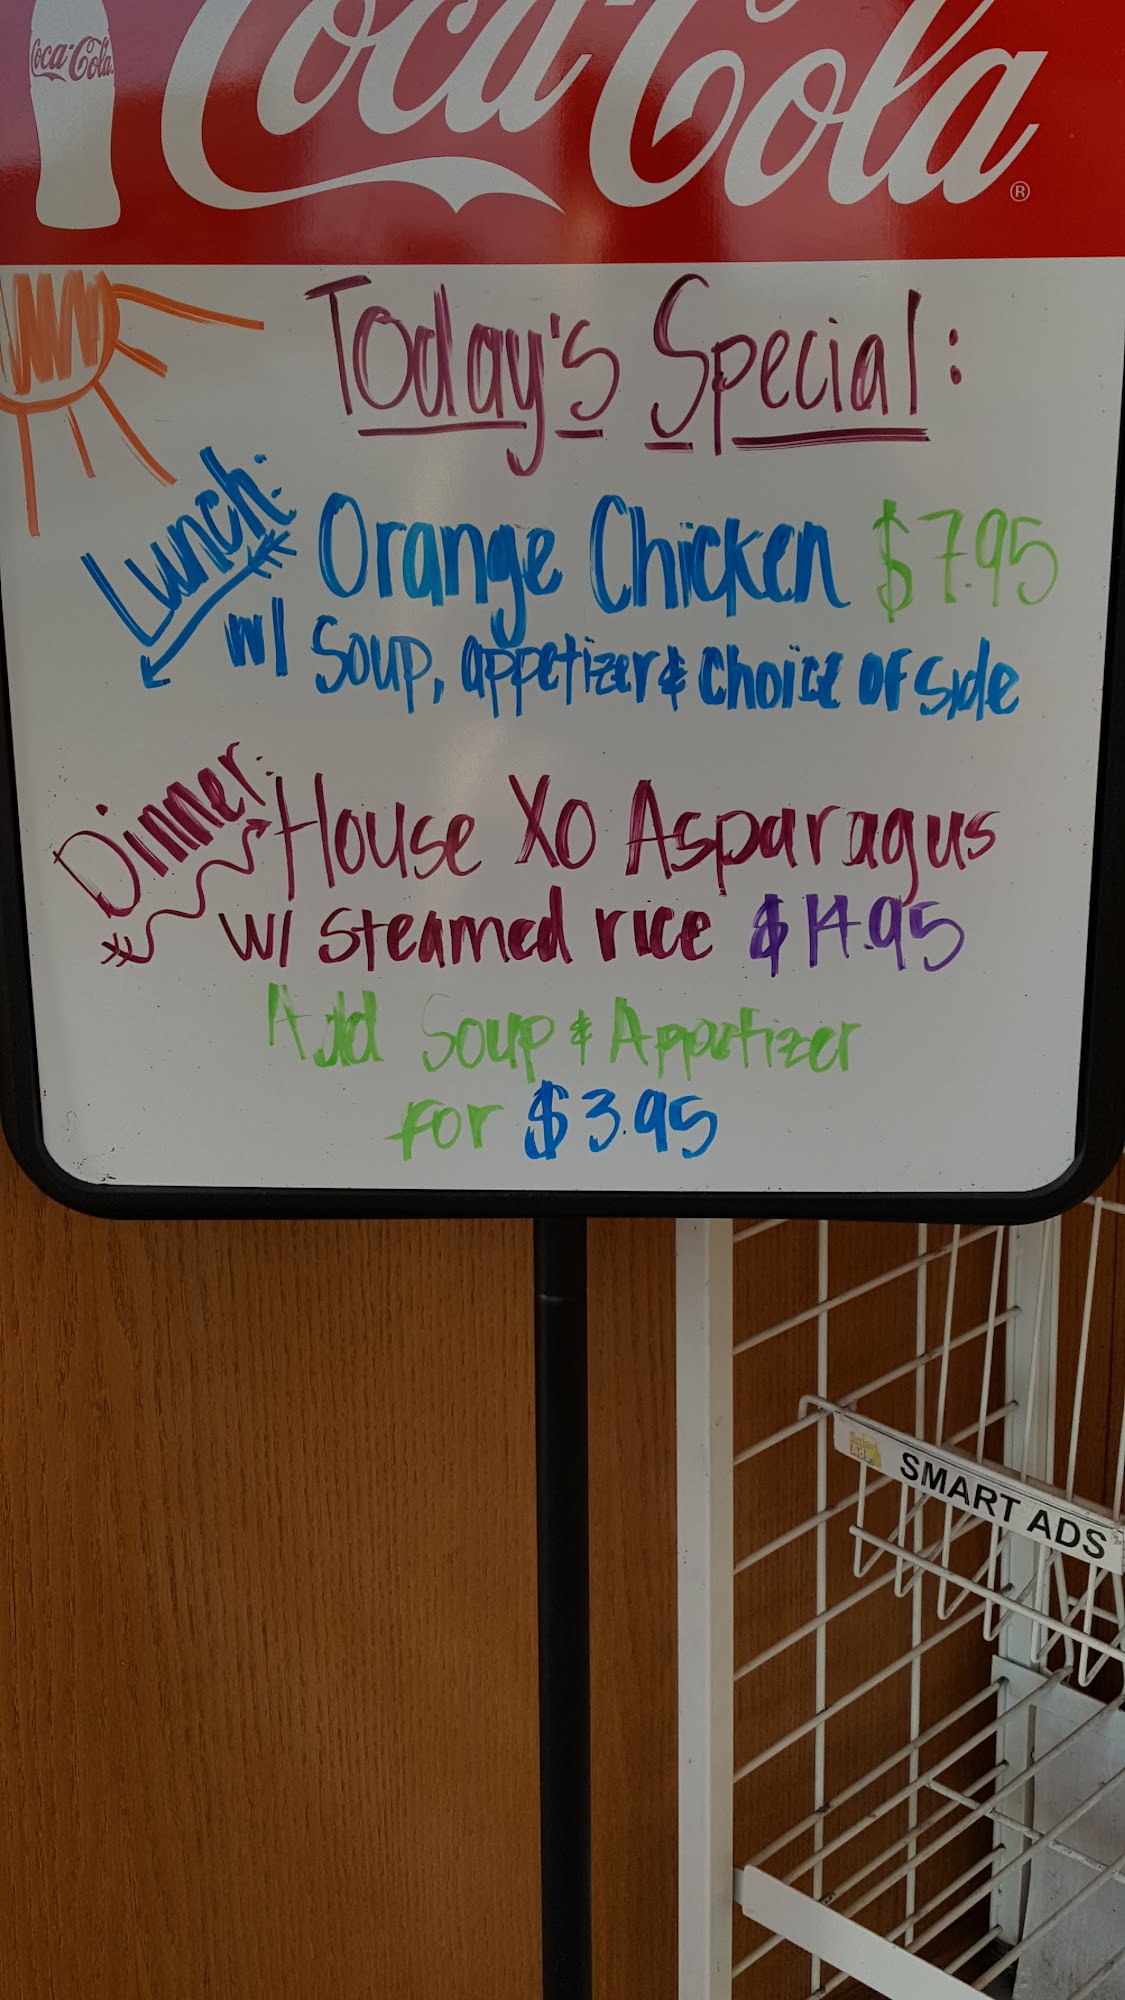 Coca-Cola
Coca-Cola®
Today's Special:
Lunch: Orange Chicken $7.95
w/ Soup, appetizer & choice of side
Dinner: House Xo Asparagus
w/ steamed rice $14.95
Add Soup & Appetizer
For $3.95
SMART ADS